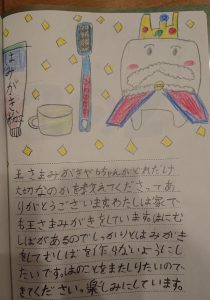 はみがき粉
王さまみがきやちゃんがどれだけ
切なのかを教えてくださってあ
りがとうございます。わたしは家で
も王さまみがきをしています。はにむ
しばがあるのでしっかりとはみがき
をしてむしばを作らないようにし
たいです。はのことをまたしりたいので
きてください。楽しみにしています。